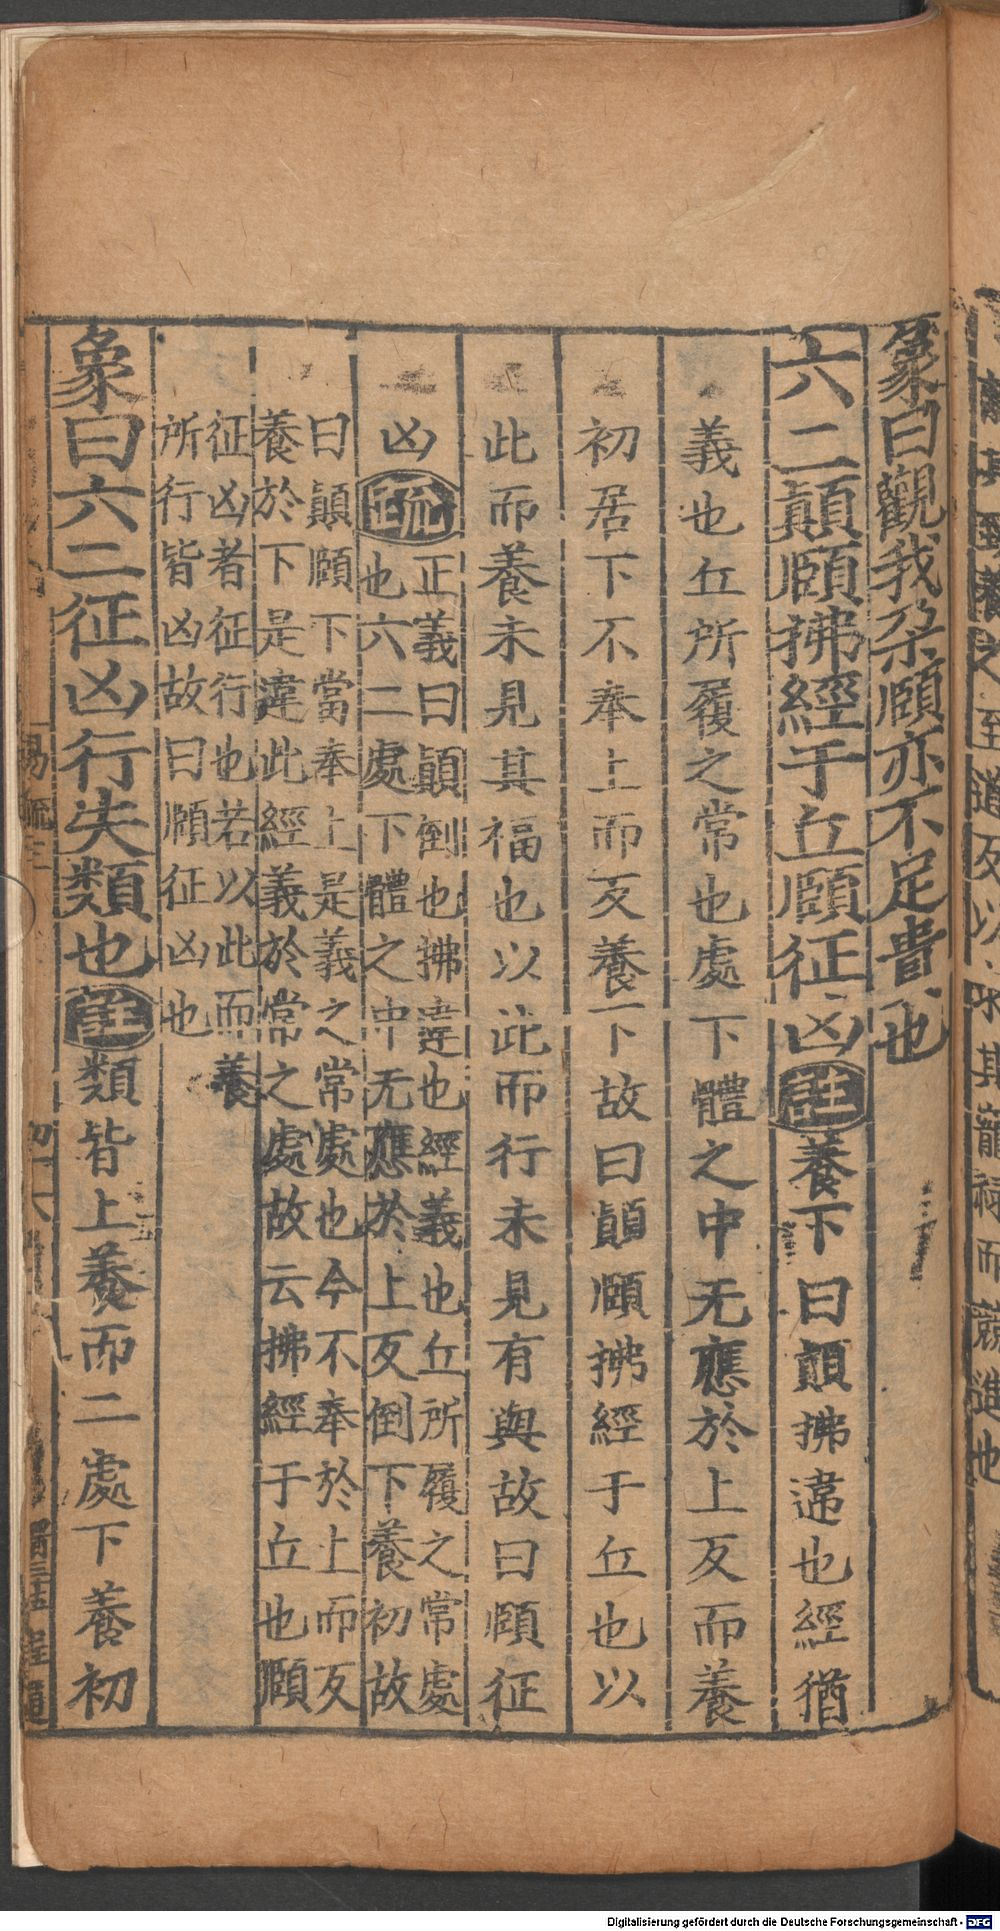 象曰觀我朶頤亦不足貴也
六二顚頤拂經于丘頤征凶註養下曰顚拂違也經猶
義也丘所履之常也處下體之中无應於上反而養
初居下不奉上而反養下故曰顚頤拂經于丘也以
此而養未見其福也以此而行未見有與故曰頤征
凶疏
正義曰顚倒也拂違也經義也丘所履之常處
也六二處下體之中无應於上反倒下養初故
曰顚頤下當奉上是義之常處也今不奉於上而反
養於下是違此經義於常之處故云拂經于丘也頤
征凶者征行也若以此而養
所行皆凶故曰頤征凶也
象曰六二征凶行失類也註類皆上養而二處下養初
Digitalisierung gefördert durch die Deutsche Forschungsgemeinschaft - DFG